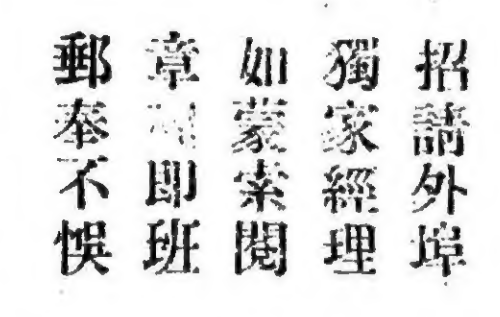 招請外埠
獨家經理
如蒙索閱
章 即班
郵奉不悞